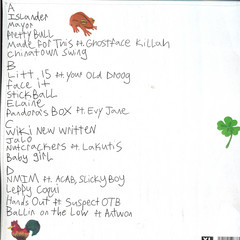 A
Islander
Mayor
Pretty Bull
Made For This ft. Ghostface Killah
Chinatown Swing
B
Litt 15 ft. Your Old Droog
Face it
Stickball
Elaine
Pandora's Box ft. Evy Jane
C
Wiki New Written
Jalo
Nutcrackers ft Lakutis
Baby girl
D
NMIM ft. ACAB, Slicky Boy
Leppy Coqui
Hands Out ft Suspect OTB
Ballin on the Low ft Antwon
XL